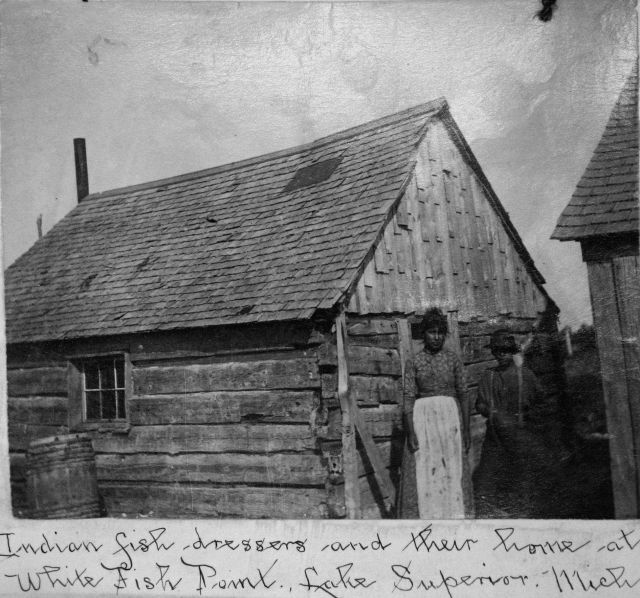 Indian fish dressers and their home at
White Fish Point., Lake Superior. Mich